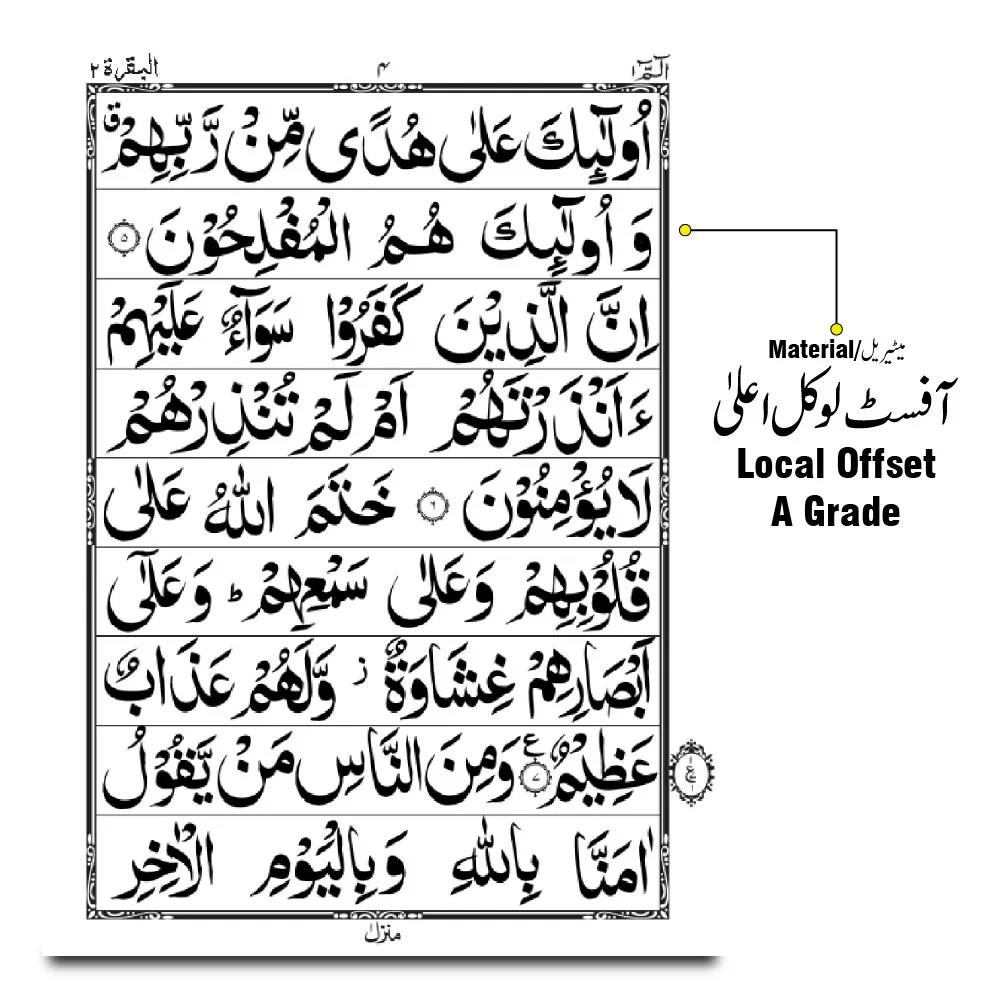 الٓمّٓ ١ ۴ البقرة ٢
اُولٰٓئِكَ عَلٰى هُدًى مِّنْ رَّبِّهِمْ ق
وَ اُولٰٓئِكَ هُمُ الْمُفْلِحُوْنَ ۵
اِنَّ الَّذِيْنَ كَفَرُوْا سَوَآءٌ عَلَيْهِمْ
ءَاَنْذَرْتَهُمْ اَمْ لَمْ تُنْذِرْهُمْ
لَا يُؤْمِنُوْنَ ۶ خَتَمَ اللّٰهُ عَلٰى
قُلُوْبِهِمْ وَعَلٰى سَمْعِهِمْ ؕ وَعَلٰٓى
اَبْصَارِهِمْ غِشَاوَةٌ ز وَّلَهُمْ عَذَابٌ
عَظِيْمٌ ۷ ع وَمِنَ النَّاسِ مَنْ يَّقُوْلُ
اٰمَنَّا بِاللّٰهِ وَبِالْيَوْمِ الْاٰخِرِ
منزل ١
Material/میٹیریل
آفسٹ لوکل اعلیٰ
Local Offset
A Grade